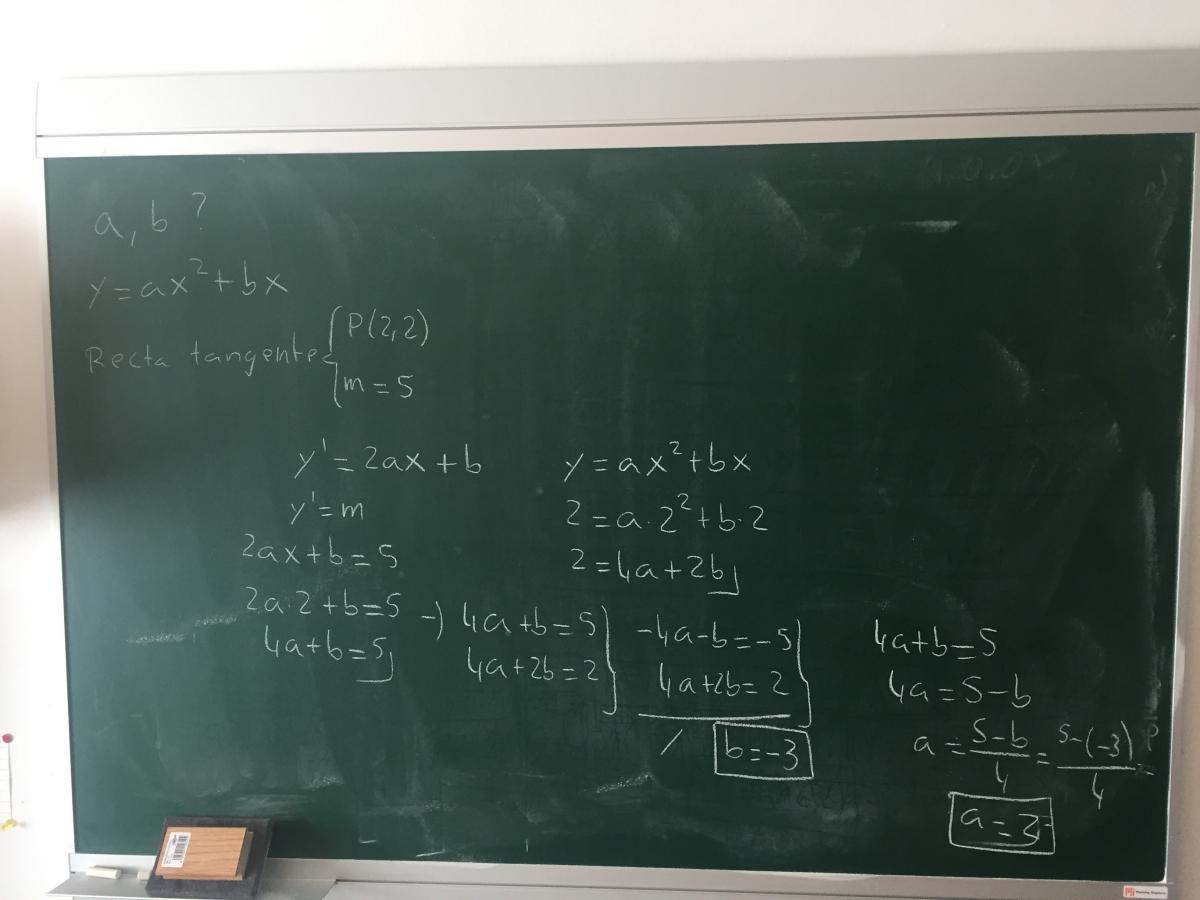 a, b ?
y = ax² + bx
Recta tangente { P(2,2)
m = 5
y' = 2ax + b
y' = m
2ax + b = 5
2a·2 + b = 5
4a + b = 5
y = ax² + bx
2 = a·2² + b·2
2 = 4a + 2b
-) 4a + b = 5
4a + 2b = 2
-4a - b = -5
4a + 2b = 2
/ b = -3
4a + b = 5
4a = 5 - b
a = (5 - b)/4 = (5 - (-3))/4 =
a = 2